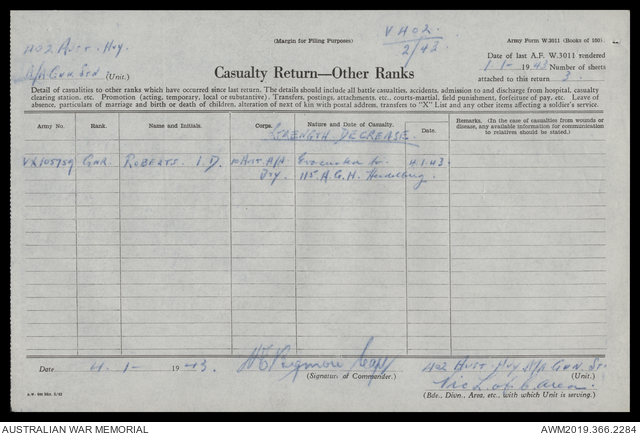 402 Aust. Hvy.
A/A Gun Stn (Unit.)
(Margin for Filing Purposes)
V 402.
2/43
Army Form W.3011 (Books of 100).
Date of last A.F. W.3011 rendered
1-1- 1943 Number of sheets
attached to this return 3.
Casualty Return—Other Ranks
Detail of casualties to other ranks which have occurred since last return. The details should include all battle casualties, accidents, admission to and discharge from hospital, casualty
clearing station, etc. Promotion (acting, temporary, local or substantive). Transfers, postings, attachments, etc., courts-martial, field punishment, forfeiture of pay, etc. Leave of
absence, particulars of marriage and birth or death of children, alteration of next of kin with postal address, transfers to "X" List and any other items affecting a soldier's service.
Army No. Rank. Name and Initials. Corps. Nature and Date of Casualty. Date. Remarks. (In the case of casualties from wounds or disease, any available information for communication to relatives should be stated.)
STRENGTH DECREASE.
VX105759 GNR. ROBERTS. I. D. Aust A/A Evacuation to 4.1.43.
Bty. 115 A.G.H. Heidelberg.
Date 4-1- 1943.
(Signature of Commander.)
402 Aust Hvy A/A Gun St.
(Unit.)
Vic L of C Area.
(Bde., Divn., Area, etc., with which Unit is serving.)
AUSTRALIAN WAR MEMORIAL
AWM2019.366.2284